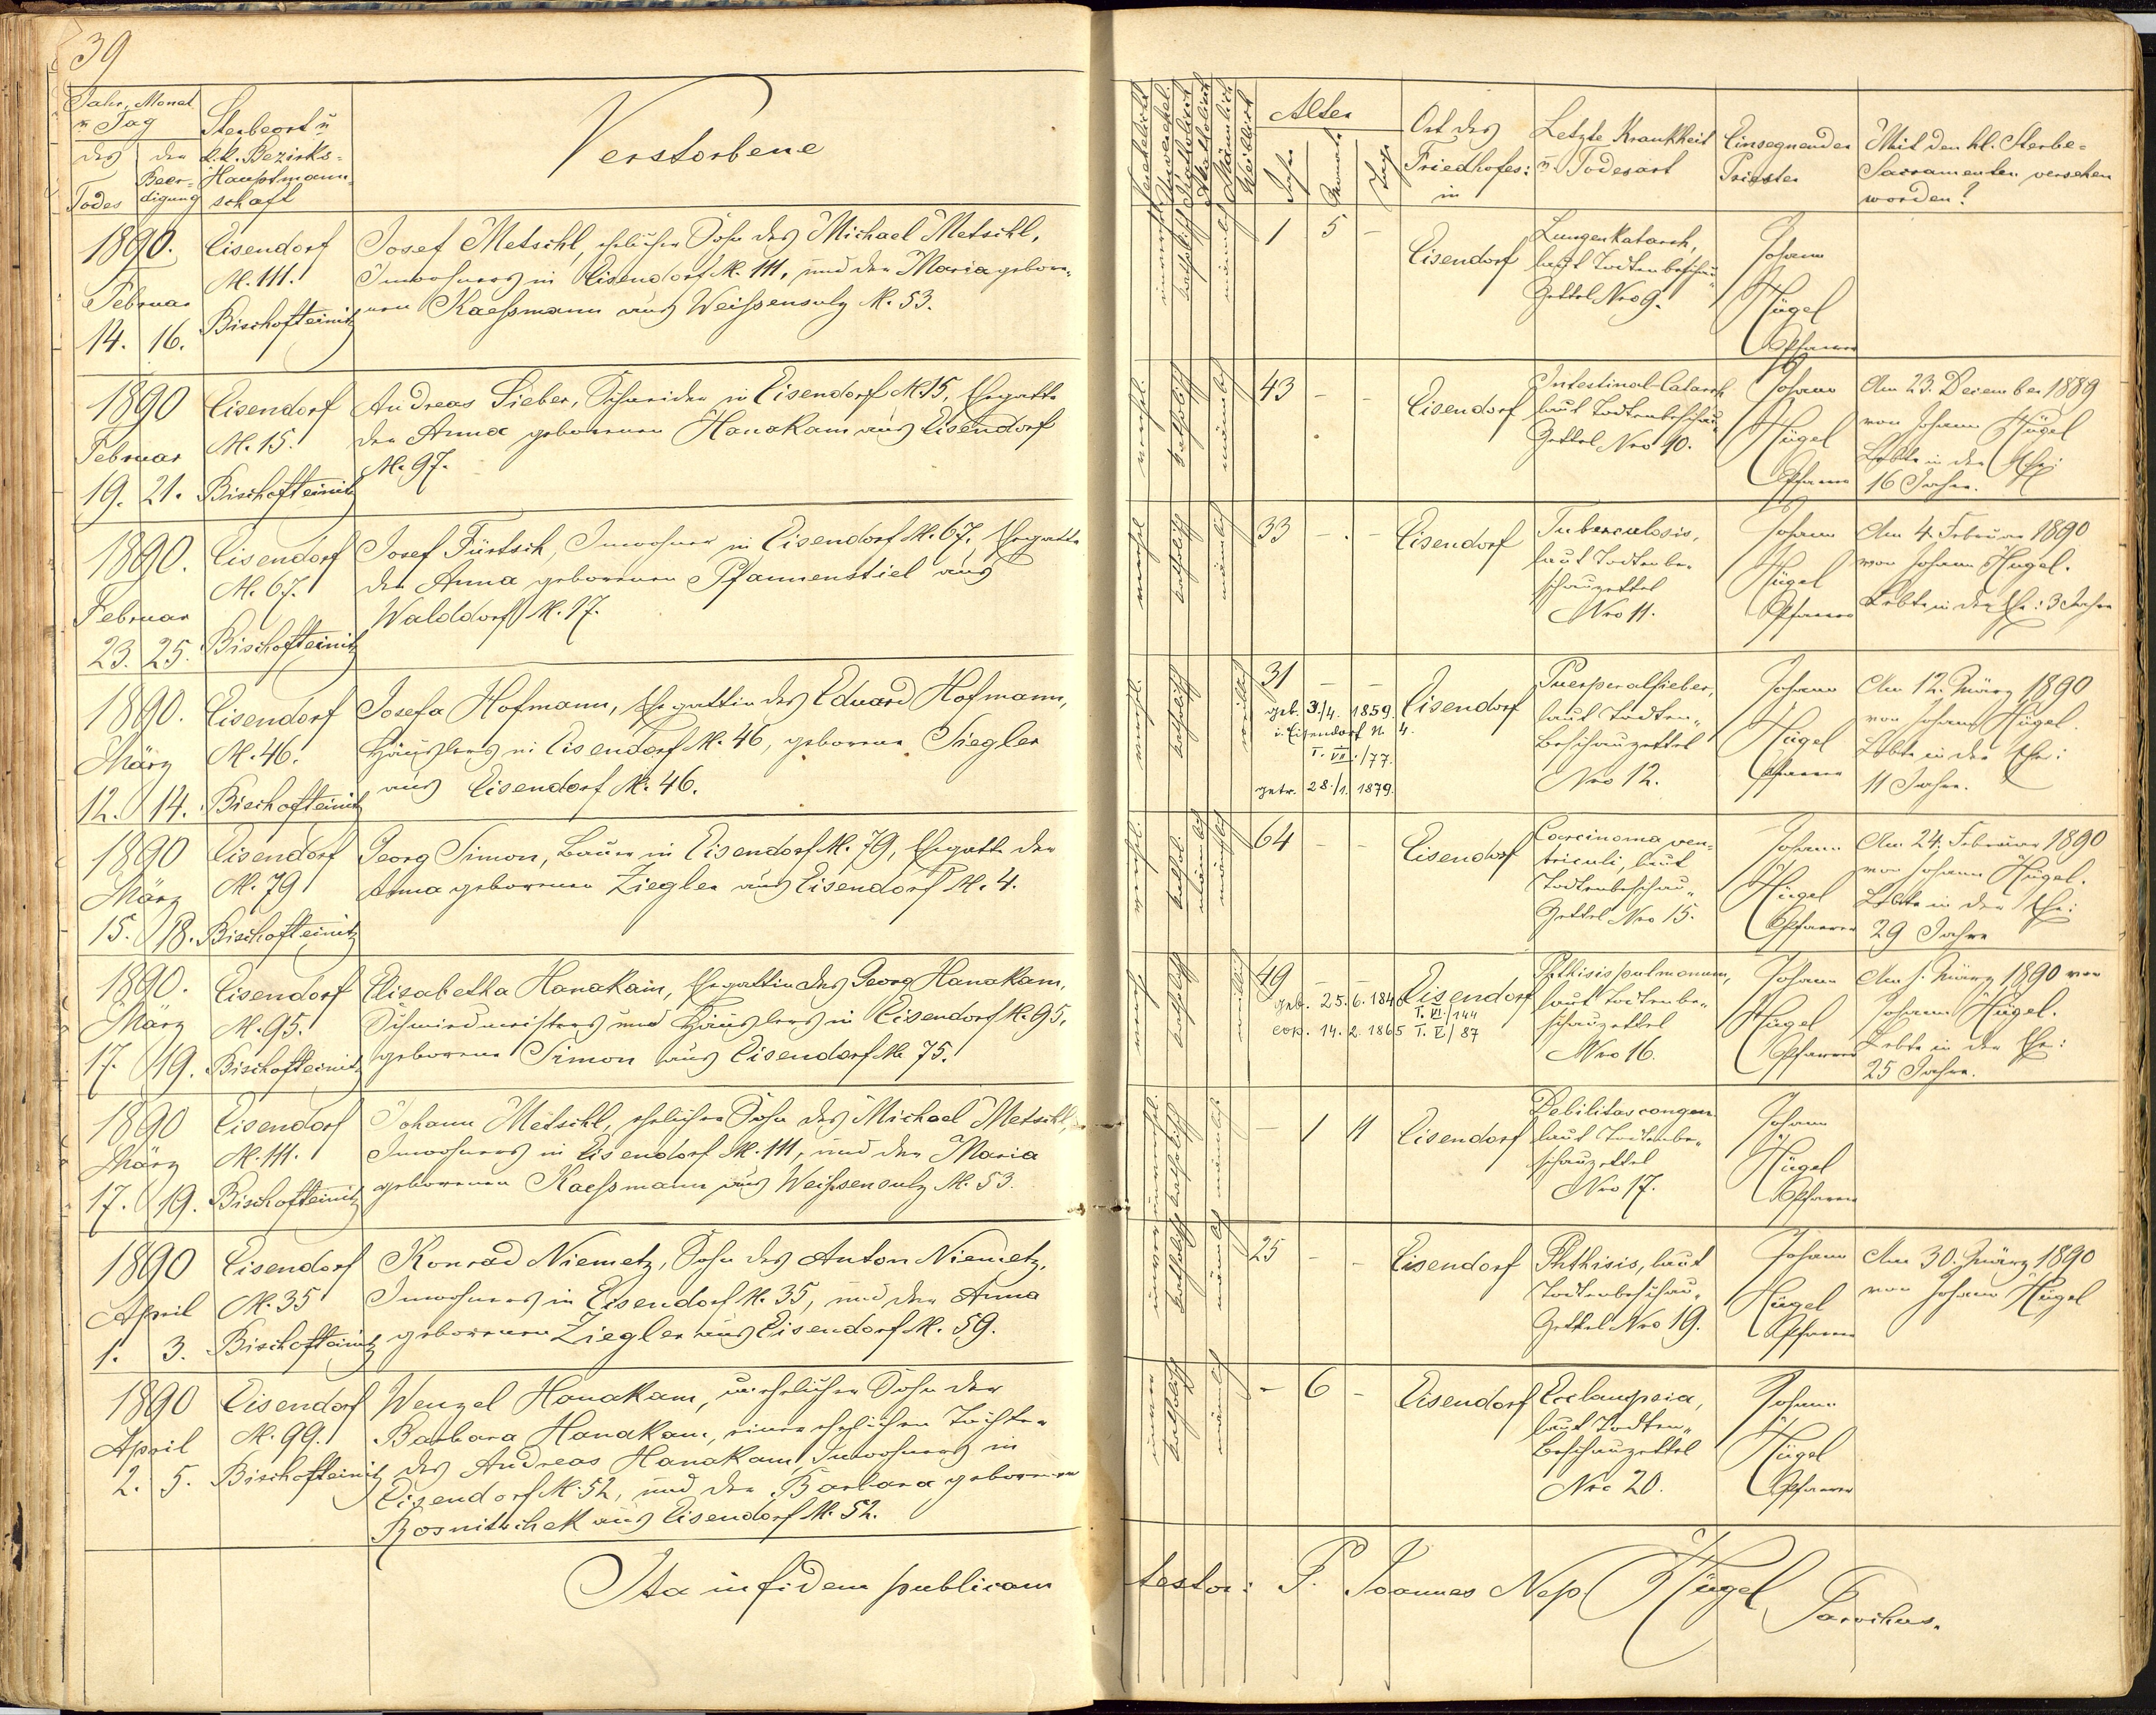 39
Jahr, Monat
u Tag
des
Todes
der
Beer-
digung
Sterbeort u
k.k. Bezirks-
Hauptmann-
schaft
Verstorbene
Verehelicht
Unverehel.
Katholisch
Akatholisch
Männlich
Weiblich
Alter
Jahre
Monate
Tage
Ort des
Friedhofes:
in
Letzte Krankheit
u. Todesart
Einsegnender
Priester
Mit den hl. Sterbe-
Sacramenten versehen
worden?
1890.
Februar
14. 16.
Eisendorf
N. 111.
Bischofteinitz
Josef Metschl, ehelicher Sohn des Michael Metschl,
Inwohners in Eisendorf N. 111, und der Maria gebore-
nen Kaeßmann aus Weißensulz N. 53.
katholisch
männlich
1 5 -
Eisendorf
Lungenkatarrh,
laut Todtenbeschau-
Zettel Nro 9.
Johann
Hügel
Pfarrer
1890
Februar
19. 21.
Eisendorf
N. 15.
Bischofteinitz
Andreas Sieber, Schneider in Eisendorf N. 15, Ehegatte
der Anna geborenen Hanakam aus Eisendorf
N. 97.
verehel.
katholisch
männlich
43 - -
Eisendorf
Intestinal-Catarrh
laut Todtenbeschau-
Zettel Nro 10.
Johann
Hügel
Pfarrer
Am 23. December 1889
von Johann Hügel
Lebte in der Ehe:
16 Jahre.
1890.
Februar
23. 25.
Eisendorf
N. 67.
Bischofteinitz
Josef Fürtsch, Inwohner in Eisendorf N. 67, Ehegatte
der Anna geborenen Pfannenstiel aus
Walddorf N. 17.
verehel
katholisch
männlich
33 - -
Eisendorf
Tuberculosis,
laut Todtenbe-
schauzettel
Nro 11.
Johann
Hügel
Pfarrer
Am 4. Februar 1890
von Johann Hügel.
Lebte in der Ehe: 3 Jahre
1890.
März
12. 14.
Eisendorf
N. 46.
Bischofteinitz
Josefa Hofmann, Ehegattin des Eduard Hofmann,
Häuslers in Eisendorf N. 46, geborene Siegler
aus Eisendorf N. 46.
verehel.
katholisch
weiblich
31 - -
geb. 3./4. 1859.
i. Eisendorf N. 4.
T. VII./77.
getr. 28./1. 1879.
Eisendorf
Puerperalfieber,
laut Todten-
Beschauzettel
Nro 12.
Johann
Hügel
Pfarrer
Am 12. März 1890
von Johann Hügel.
Lebte in der Ehe:
11 Jahre.
1890
März
15. 18.
Eisendorf
N. 79
Bischofteinitz
Georg Simon, Bauer in Eisendorf N. 79, Ehegatte der
Anna geborenen Ziegler aus Eisendorf N. 4.
verehel.
kathol.
männlich
männlich
64 - -
Eisendorf
Carcinoma ven-
triculi, laut
Todtenbeschau-
Zettel Nro 15.
Johann
Hügel
Pfarrer
Am 24. Februar 1890
von Johann Hügel.
Lebte in der Ehe:
29 Jahre
1890.
März
17. 19.
Eisendorf
N. 95.
Bischofteinitz
Elisabetha Hanakam, Ehegattin des Georg Hanakam,
Schmiedmeisters und Häuslers in Eisendorf N. 95,
geborene Simon aus Eisendorf N. 75.
katholisch
weiblich
49 - -
geb. 25. 6. 1840
T. VI./144
cop. 14. 2. 1865 T. V/87
Eisendorf
Phthisis pulmonum,
laut Todtenbe-
schauzettel
Nro 16.
Johann
Hügel
Pfarrer
Am 1. März 1890 von
Johann Hügel.
Lebte in der Ehe:
25 Jahre.
1890
März
17. 19.
Eisendorf
N. 111.
Bischofteinitz
Johann Metschl, ehelicher Sohn des Michael Metschl,
Inwohners in Eisendorf N. 111, und der Maria
geborenen Kaeßmann aus Weißensulz N. 53.
unverehel.
katholisch
männlich
- 1 11
Eisendorf
Debilitas congen.
laut Todtenbe-
schauzettel
Nro 17.
Johann
Hügel
Pfarrer
1890
April
1. 3.
Eisendorf
N. 35
Bischofteinitz
Konrad Niemetz, Sohn des Anton Niemetz,
Inwohners in Eisendorf N. 35, und der Anna
geborenen Ziegler aus Eisendorf N. 59.
katholisch
männlich
25 - -
Eisendorf
Phthisis, laut
Todtenbeschau-
Zettel Nro 19.
Johann
Hügel
Pfarrer
Am 30. März 1890
von Johann Hügel
1890
April
2. 5.
Eisendorf
N. 99.
Bischofteinitz
Wenzel Hanakam, unehelicher Sohn der
Barbara Hanakam, einer ehelichen Tochter
des Andreas Hanakam, Inwohners in
Eisendorf N. 52, und der Barbara geborenen
Rosnitschek aus Eisendorf N. 52.
katholisch
männlich
- 6 -
Eisendorf
Eclampsia,
laut Todten-
Beschauzettel
Nro 20.
Johann
Hügel
Pfarrer
Ita in fidem publicam
testor: P. Joannes Nep. Hügel
Parochus.